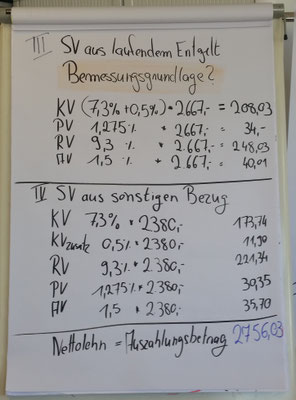 III SV aus laufendem Entgelt
Bemessungsgrundlage?
KV (7,3%+0,5%) * 2667,- = 208,03
PV 1,275% * 2667,- = 34,-
RV 9,3 % * 2.667,- = 248,03
AV 1,5 % * 2667,- = 40,01
IV SV aus sonstigen Bezug
KV 7,3% * 2380,- 173,74
KVzusatz 0,5% * 2380,- 11,90
RV 9,3% * 2.380,- 221,34
PV 1,275% * 2380,- 30,35
AV 1,5 * 2380,- 35,70
Nettolohn = Auszahlungsbetrag 2756,03